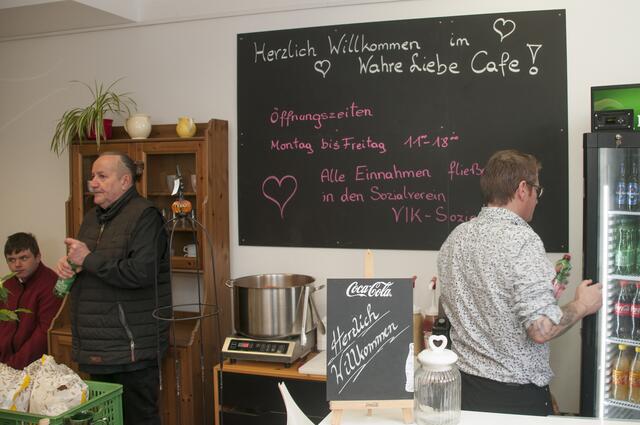 Herzlich Willkommen im
Wahre Liebe Cafe!
Öffnungszeiten
Montag bis Freitag 11⁰⁰-18⁰⁰
Alle Einnahmen fließe
in den Sozialverein
VIK-Sozi
Coca-Cola
Herzlich
Willkommen